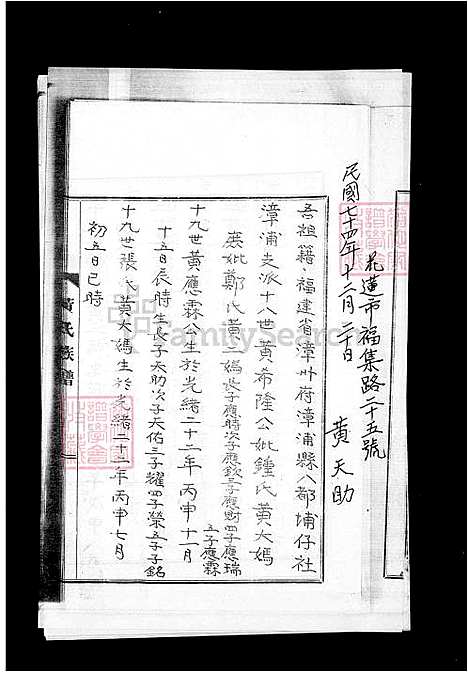 花蓮市福集路二十五號
民國七十四年十二月二十日
黄天助
吾祖籍、福建省漳州府漳浦縣八都埔仔社
漳浦支派十八世黃希隆公妣鍾氏黃大媽
庶妣鄭氏黃二媽長子應時次子應欽三子應財四子應瑞
五子應霖
十九世黃應霖公生於光緒二十二年 丙申十一月
十五日辰時 生長子天助次子天佑三子耀四子榮五子銘
十九世張氏黃大媽生於光緒二十二年丙申七月
初五日巳時
黃氏族譜
FamilySearch